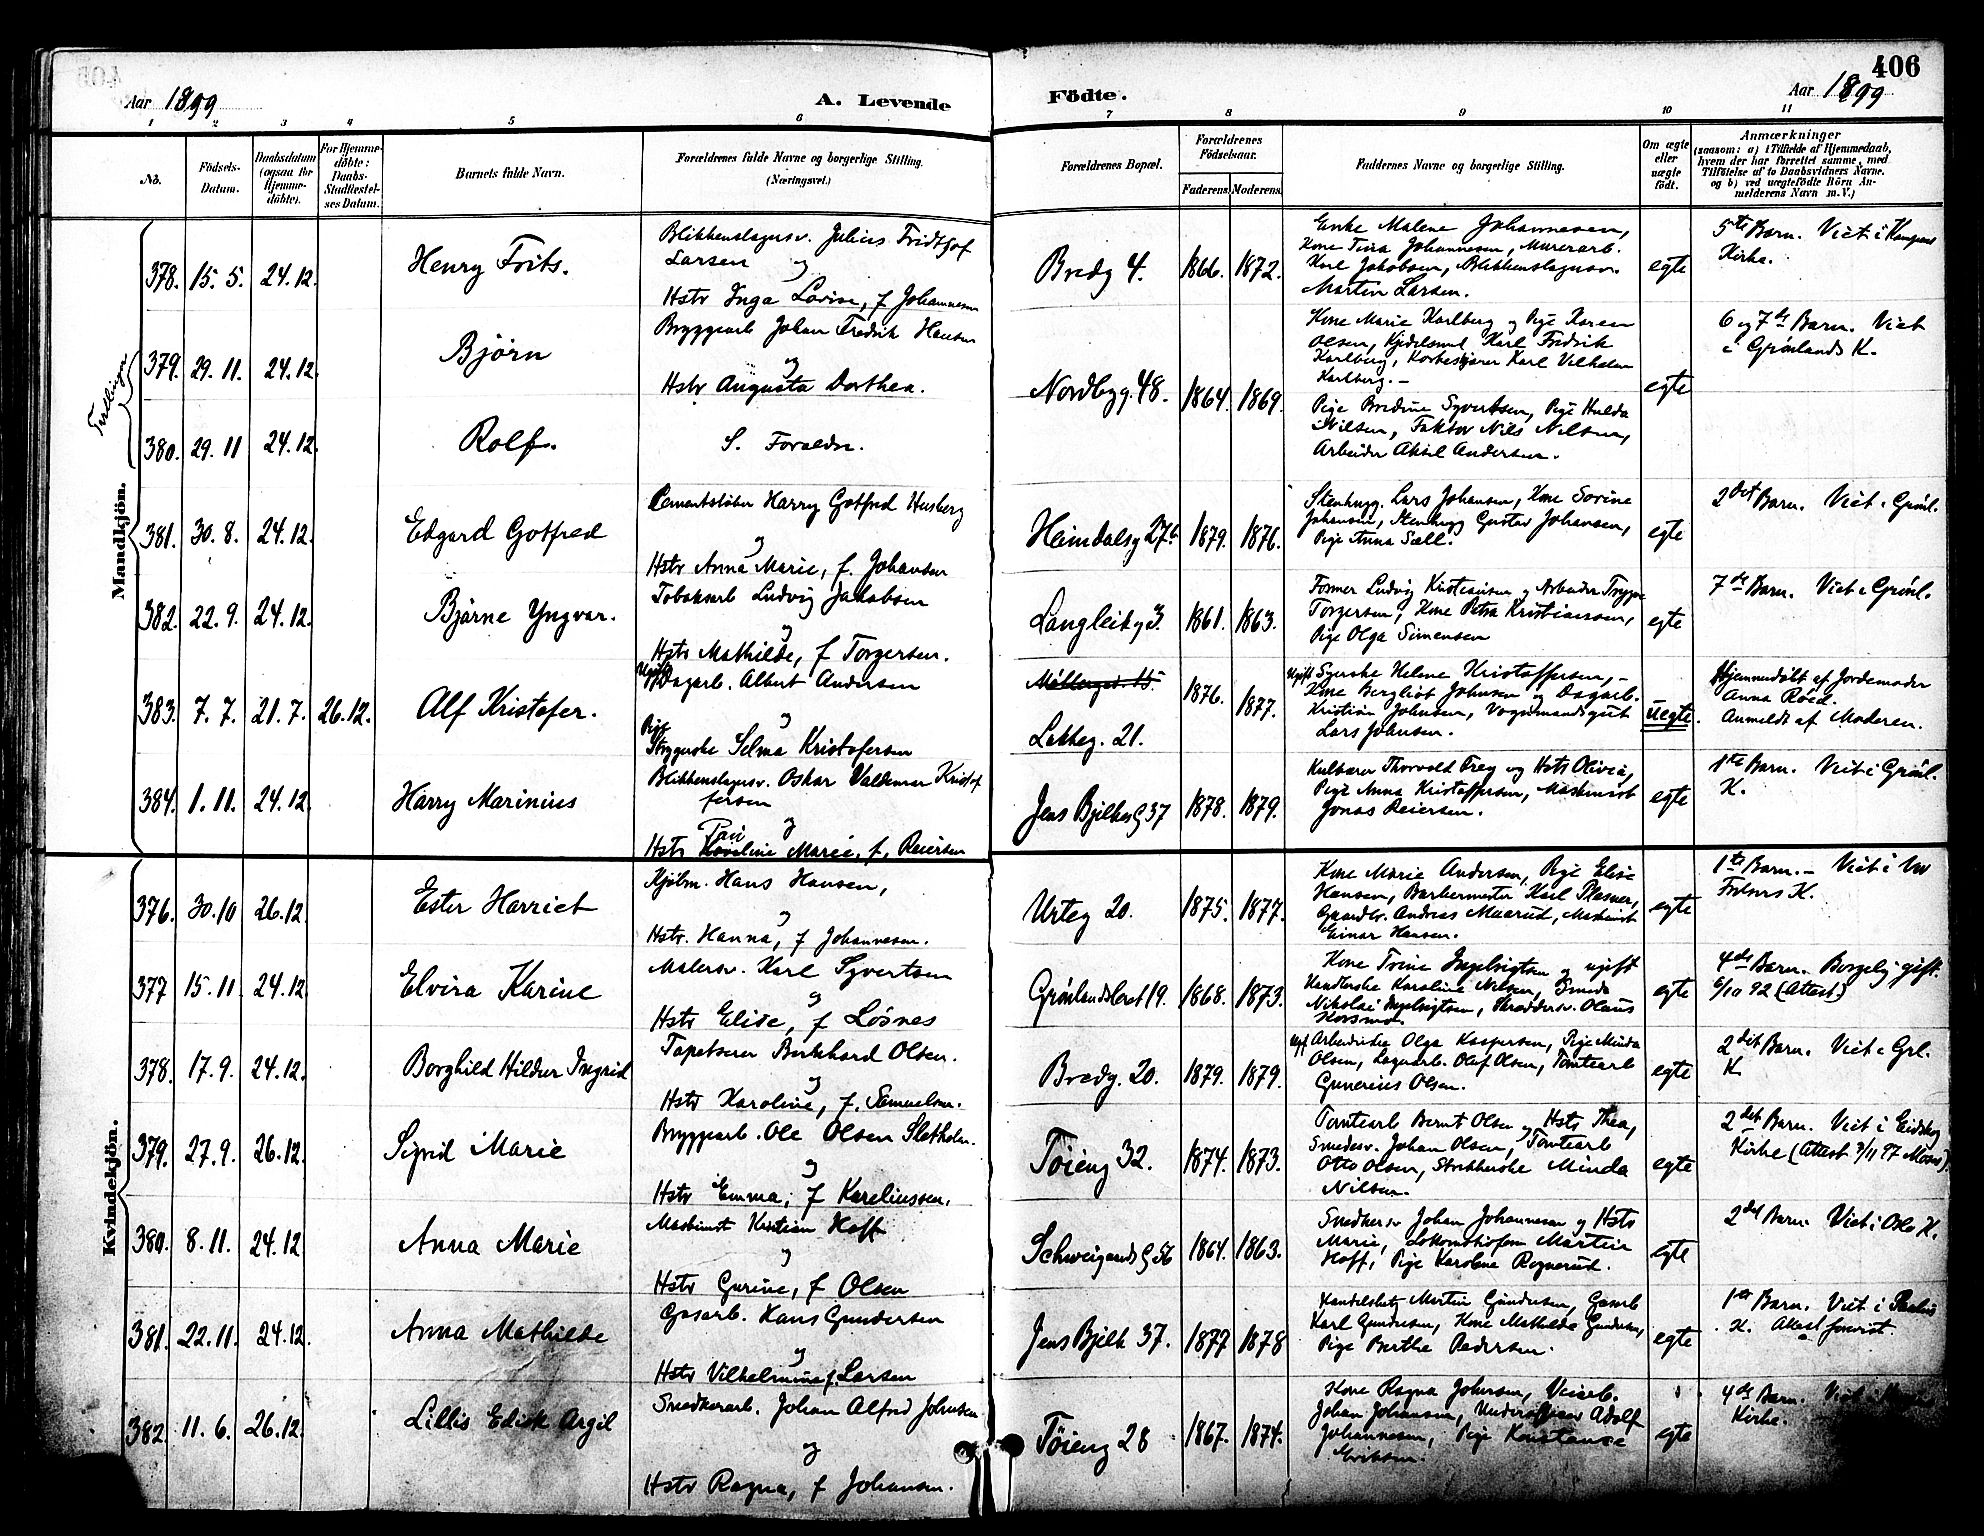 406
Aar 1899
A. Levende
Födte.
Aar 1899
1 2 3 4 5 6 7 8 9 10 11
No.
Födsels-Datum.
Daabsdatum (ogsaa for Hjemme-döbte).
For Hjemme-döbte: Daabs-Stadfæstel-ses Datum.
Barnets fulde Navn.
Forældrenes fulde Navne og borgerlige Stilling.
(Næringsvei.)
Forældrenes Bopæl.
Forældrenes Födselsaar.
Faderens. Moderens.
Faddernes Navne og borgerlige Stilling.
Om ægte eller uægte födt.
Anmærkninger
(saasom: a) i Tilfælde af Hjemmedaab,
hvem der har forrettet samme, med
Tilföielse af to Daabsvidners Navne.
og b) ved uægtefödte Börn An-
melderens Navn m. V.)
Mandkjön.
378. 15. 5. 24. 12. Henry Frits.
Blikkenslagersv. Julius Fridtjof
Larsen og
Hstr Inga Lovise, f Johannesen
Bredg 4. 1866. 1872.
Enke Malene Johannesen,
Kone Tina Johannesen, Murerarb.
Karl Jakobsen, Blikkenslagersv.
Martin Larsen.
egte
5te Barn. Viet i Kampens
Kirke.
Tvillinger
379. 29. 11. 24. 12. Björn
Bryggearb Johan Fredrik Hansen
og
Hstr Augusta Dorthea.
Nordbyg. 48. 1864. 1869.
Kone Marie Karlberg og Pige Karen
Olsen, Kjedelsmed Karl Fredrik
Karlberg, Karl Vilhelm
Karlberg.
egte
6 og 7de Barn. Viet
i Grönlands K.
380. 29. 11 24. 12. Rolf.
S. Forældre.
Pige Bredine Syvertsen, Pige Hulda
Nilsen, Faktor Nils Nilsen,
Arbeider Aksel Andersen.
381. 30. 8. 24. 12. Edgard Gotfred
Cementstöber Harry Gotfred Husberg
og
Hstr Anna Marie, f. Johansen
Heimdalsg 27 1879. 1876.
Stenhugg. Lars Johansen, Kone Sorine
Johansen, Stenhugg Gustav Johansen,
Pige Anna Sæll.
egte
2det Barn. Viet i Grönl.
382. 22. 9. 24. 12. Bjarne Yngvar.
Tobaksarb Ludvig Jakobsen
og
Hstr Mathilde, f Torgersen.
Langleikg 3. 1861. 1863.
Former Ludvig Kristiansen og Arbeider Trygve
Torgersen, Kone Petra Kristiansen,
Pige Olga Simensen
egte
7de Barn. Viet i Grönl.
383. 7. 7. 21. 7. 26. 12. Alf Kristofer.
Ugift Dagarb. Albert Andersen
og
Pige Strygerske Selma Kristofersen
Möllergd. 15.
Lakkeg. 21.
1876. 1877.
Ugift Syerske Helene Kristoffersen,
Kone Bergliot Johnsen og Dagarb.
Kristian Johnsen, Vognmandsgut
Lars Johnsen.
uegte.
Hjemmedöbt af Jordemoder
Anna Röed.
Anmeldt af Moderen.
384. 1. 11. 24. 12. Harry Marinius
Blikkenslagersv. Oskar Valdemar Kristof
fersen
og
Hstr Marie, f. Reiersen
Jens Bjelkesg 37 1878. 1879.
Kulbærer Thorvald Frey og Hstr Olivia,
Pige Anna Kristoffersen, Maskinist
Jonas Reiersen.
egte
1ste Barn. Viet i Grönl.
K.
Kvindekjön.
376. 30. 10 26. 12 Ester Harriet
Kjölm. Hans Hansen,
og
Hstr. Hanna, f Johannesen.
Urteg 20. 1875. 1877.
Kone Marie Andersen, Pige Elise
Hansen, Barbermester Karl Plesner,
Gaardbr. Andreas Maarud, Maskinist
Einar Hansen.
egte
1ste Barn.– Viet i Vor
Frelsers K.
377 15. 11. 24. 12 Elvira Karine
Malersv. Karl Syvertsen
og
Hstr Elise, f Lösnes
Grönlandsleret 19. 1868. 1873.
Kone Trine Ingebrigtsen og ugift
Handlerske Karoline Nilsen, Smed
Nikolai Ingebrigtsen, Skreddersv. Olaus
Korsmo.
egte
4de Barn. Borgelig gift.
6/10 92 (Attest.)
378. 17. 9. 24. 12. Borghild Hildur Ingrid
Tapetserer Bernhard Olsen.
og
Hstr Karoline, f. Samuelsen.
Bredg. 20. 1879. 1879.
Ugift Arbeiderske Olga Kaspersen, Pige Minda
Olsen, Lagerarb. Oluf Olsen, Tomtearb
Gunerius Olsen.
egte
2det Barn. Viet i Grl.
K
379. 27. 9. 26. 12. Sigrid Marie
Bryggearb. Ole Olsen Sletholm.
og
Hstr Emma, f Kareliussen.
Töieng 32. 1874. 1873.
Tomtearb Bernt Olsen og Hstr Thea,
Smedesv. Johan Olsen, Tomtearb
Otto Olsen, Minda
Nilsen.
egte
2det Barn. Viet i Eidsberg
Kirke (Attest 3/11 97 Moss).
380. 8. 11. 24. 12 Anna Marie
Maskinist Kristian Hoff
og
Hstr Gurine, f Olsen
Schweigaardsg 56 1864. 1863.
Snedkersv Johan Johannesen og Hstr
Marie, Martin
Hoff, Pige Karoline Rognerud.
egte
2det Barn. Viet i Oslo K.
381. 22. 11. 24. 12. Anna Mathilde
Gasarb. Hans Gundersen
og
Hstr Vilhelmine f. Larsen
Jens Bjelk 37. 1877 1878
Handelsbetj Martin Gundersen, Gasarb
Karl Gundersen, Kone Mathilde Gundersen,
Pige Berthe Pedersen.
egte
1ste Barn. Viet i Paulus
K. Attest forevist.
382. 11. 6. 26. 12. Lillis Edisk Argil
Snedkerarb. Johan Alfred Johnsen.
og
Hstr Ragna, f Johansen.
Töieng 28 1867. 1874.
Kone Ragna Johnsen, Veiarb.
Johan Johansen, Underofficer Adolf
Johannesen, Pige Konstance
Eriksen.
egte
4de Barn. Viet i
Kirke.